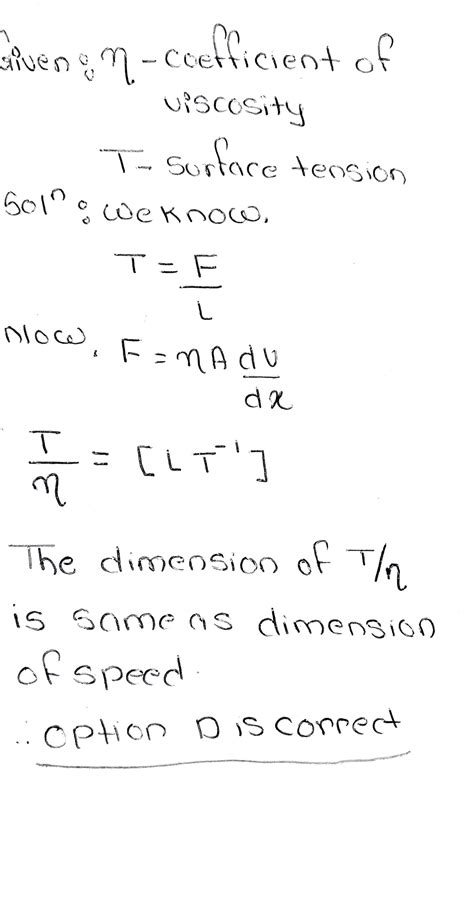 Given: η - coefficient of
viscosity
T - surface tension
Solⁿ: we know,
T = F
L
Now, F = ηA dv
dx
T = [L T⁻¹]
η
The dimension of T/η
is same as dimension
of speed.
∴ option D is correct